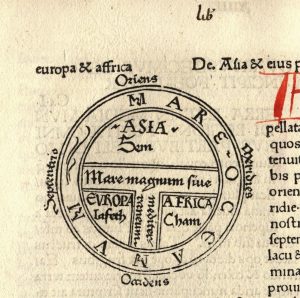 lib
europa & affrica
De. Asia & eius p
Oriens
MARE OCEANVM
Septentrio
Meridies
ASIA
Sem
Mare magnum siue
mediterraneum
EVROPA
Iafeth
AFRICA
Cham
Occidens
pellata
quos
tenuit
bis p
orien
ridie
nostr
septen
lacu &
mina
prou